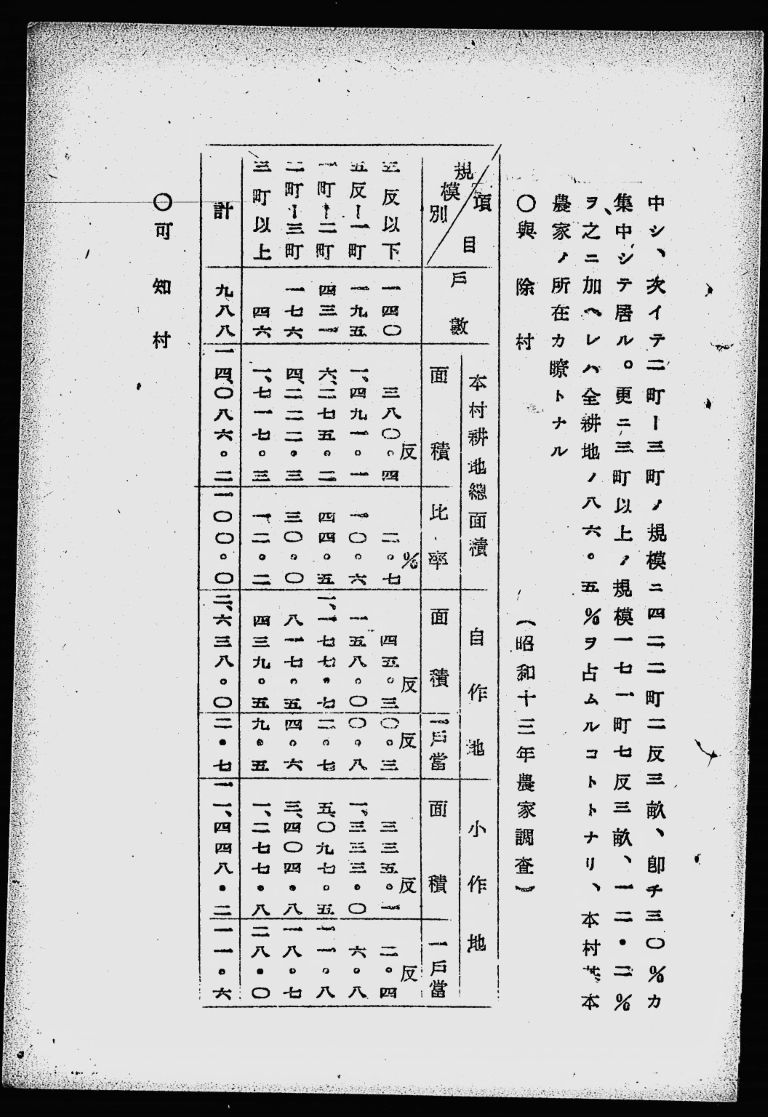 中シ、次イテ二町ー三町ノ規模ニ四二二町二反三畝、卽チ三〇%カ
集中シテ居ル。更ニ三町以上ノ規模一七一町七反三畝、一二・二%
ヲ之ニ加ヘレバ全耕地ノ八六。五%ヲ占ムルコトトナリ、本村 本
農家ノ所在カ瞭トナル
〇與除村 (昭和十三年農家調査)
項目 本村耕地總面積 自作地 小作地
規模別 戶數 面積 比率 面積 一戶當 面積 一戶當
反 % 反 反 反 反
五反以下 一四〇 三八〇。四 二。七 四五。三 〇。三 三三五。一 二。四
五反ー一町 一九五 一、四九一。一 一〇。六 一五八。〇 〇。八 一、三三三。〇 六。八
一町ー二町 四三一 六、二七五。二 四四。五 一、一七七。七 二。七 五、〇九七。五 一一。八
二町ー三町 一七六 四、二二二。三 三〇。〇 八一七。五 四。六 三、四〇四。八 一八。七
三町以上 四六 一、七一七。三 一二。二 四三九。五 九。五 一、二七七。八 二八。〇
計 九八八 一四、〇八六。二 一〇〇。〇 二、六三八。〇 二・七 一一、四四八・二 一一・六
〇可知村